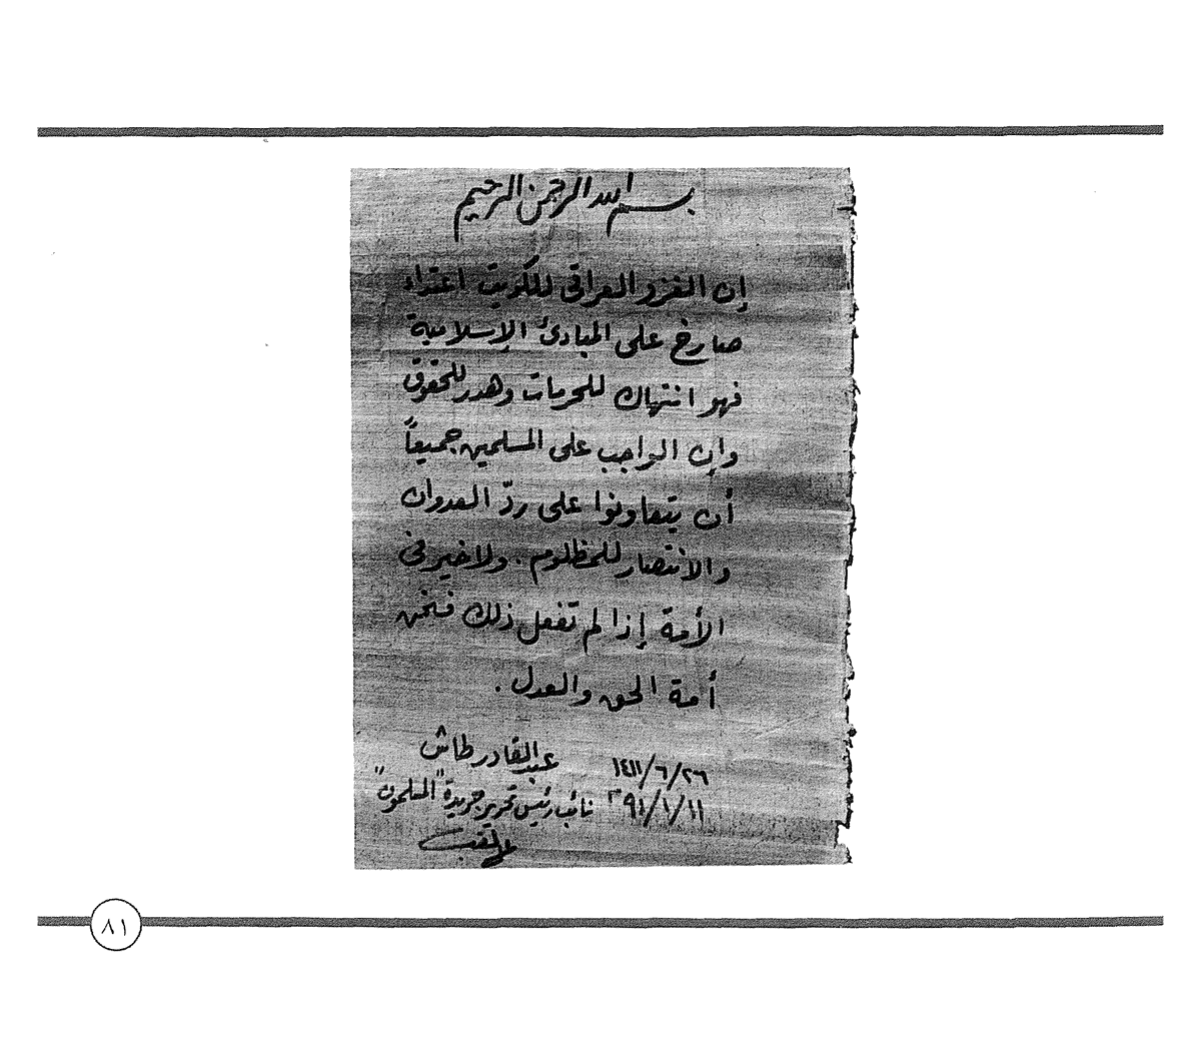 بسم الله الرحمن الرحيم
إن الغزو العراقي للكويت اعتداء
صارخ على المبادئ الإسلامية
فهو انتهاك للحرمات وهدر للحقوق
وإن الواجب على المسلمين جميعاً
أن يتعاونوا على ردّ العدوان
والانتصار للمظلوم . ولا خير في
الأمة إذا لم تفعل ذلك فنحن
أمة الحق والعدل .
عبدالقادر طاش
١٤١١/٦/٢٦
نائب رئيس تحرير جريدة "المسلمون"
٩١/١/١١م
٨١